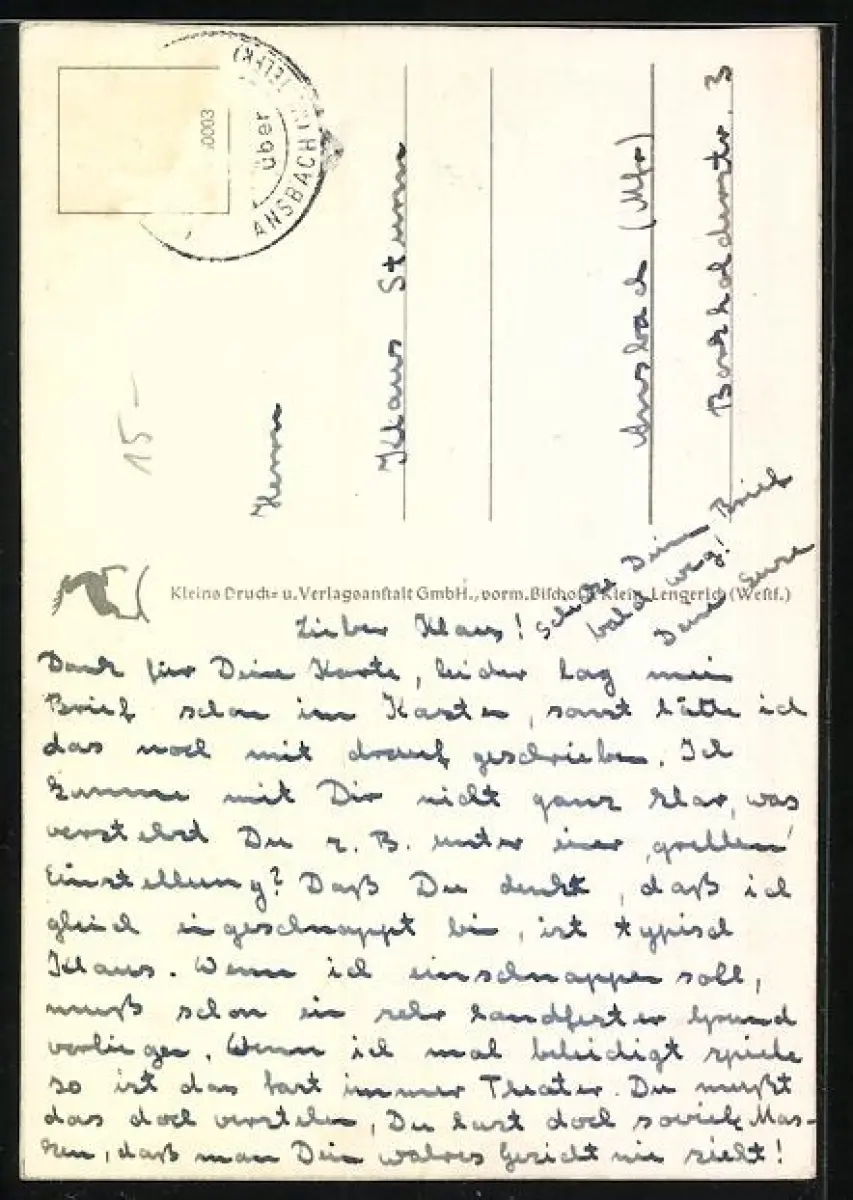 (ELFK)
über
ANSBACH
0003
15-
Herrn
Klaus Sturm
Ansbach (Mfr)
3
Kleins Druck- u. Verlagsanstalt GmbH., vorm. Bischof & Klein, Lengerich (Westf.)
Lieber Klaus!
Schicke Deinen Brief
bald weg!
Deine
Dank für Deine Karte, leider lag mein
Brief schon im Kasten, sonst hätte ich
das noch mit drauf geschrieben. Ich
komme mit Dir nicht ganz klar, was
verstehst Du z. B. unter einer "grellen"
Einstellung? Daß Du denkst, daß ich
gleich eingeschnappt bin, ist typisch
Klaus. Wenn ich einschnappen soll,
muß schon ein sehr handfester Grund
vorliegen. Wenn ich mal beleidigt spiele
so ist das fast immer Theater. Du mußt
das doch verstehen, Du hast doch soviele Mas-
ken, daß man Dein wahres Gesicht nie sieht!